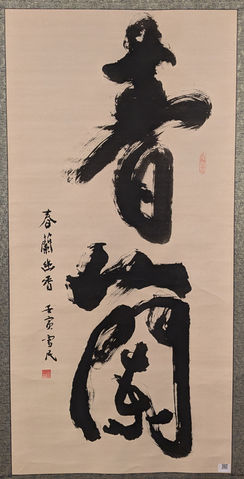 春蘭
春蘭幽香 壬寅 雪民